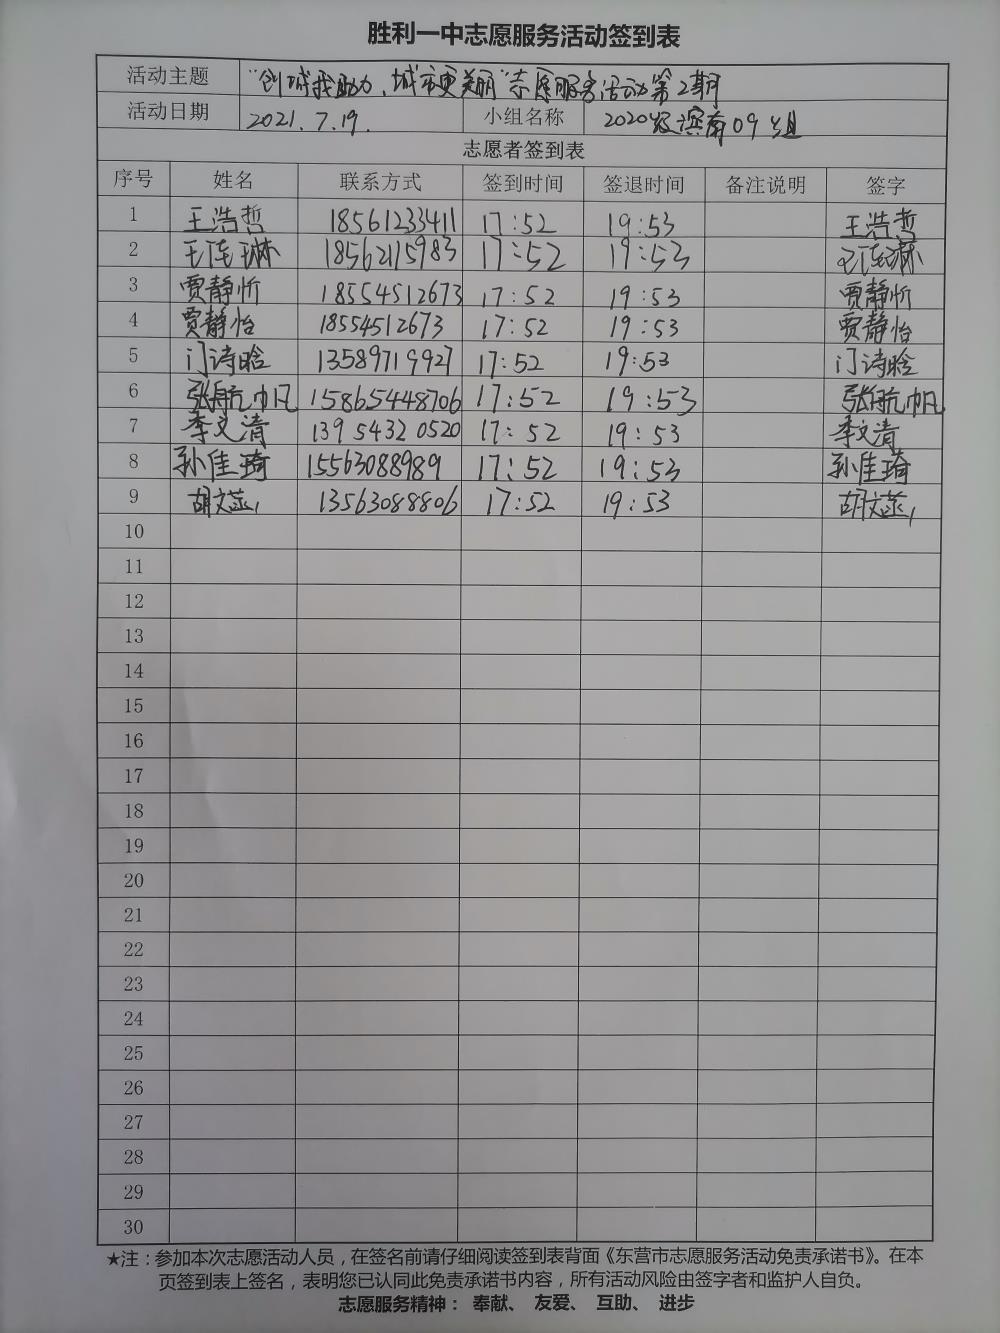 胜利一中志愿服务活动签到表
活动主题 “创城我助力,城市更美丽”志愿服务活动第2期
活动日期 2021.7.19. 小组名称 2020级滨南09组
志愿者签到表
序号 姓名 联系方式 签到时间 签退时间 备注说明 签字
1 王浩哲 18561233411 17:52 19:53 王浩哲
2 王连琳 18562115983 17:52 19:53 王连琳
3 贾静忻 18554512673 17:52 19:53 贾静忻
4 贾静怡 18554512673 17:52 19:53 贾静怡
5 门诗晗 13589719927 17:52 19:53 门诗晗
6 张航帆 15865448706 17:52 19:53 张航帆
7 李文清 13954320520 17:52 19:53 李文清
8 孙佳琦 15563088989 17:52 19:53 孙佳琦
9 胡文蕊 13563088806 17:52 19:53 胡文蕊
10
11
12
13
14
15
16
17
18
19
20
21
22
23
24
25
26
27
28
29
30
★注:参加本次志愿活动人员,在签名前请仔细阅读签到表背面《东营市志愿服务活动免责承诺书》。在本
页签到表上签名,表明您已认同此免责承诺书内容,所有活动风险由签字者和监护人自负。
志愿服务精神: 奉献、 友爱、 互助、 进步